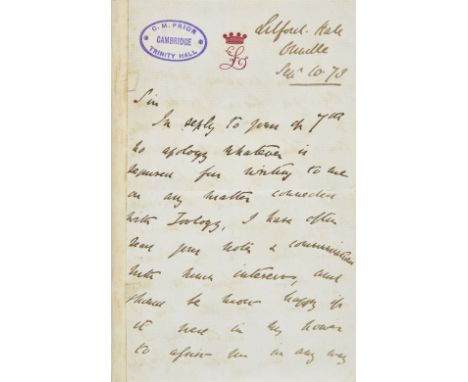 C. M. PRIOR
CAMBRIDGE
TRINITY HALL
Lilford Hall
Oundle
Sepr 10. 78
Sir
In reply to yours of 7th
no apology whatever is
required for writing to me
on any matter connected
with Zoology, I have often
read your notes & communications
with much interest, and
should be most happy if
it were in my power
to assist you in any way